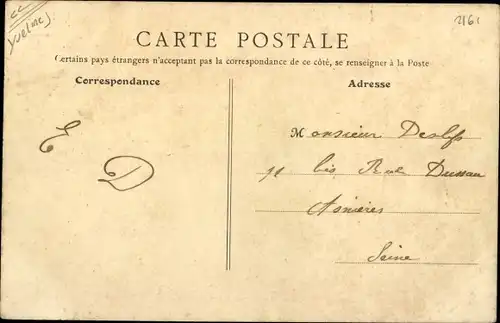 CC
Yvelines)
2161
CARTE POSTALE
Certains pays étrangers n'acceptant pas la correspondance de ce côté, se renseigner à la Poste
Correspondance
Adresse
E
D
Monsieur
bis Rue
Asnières
Seine